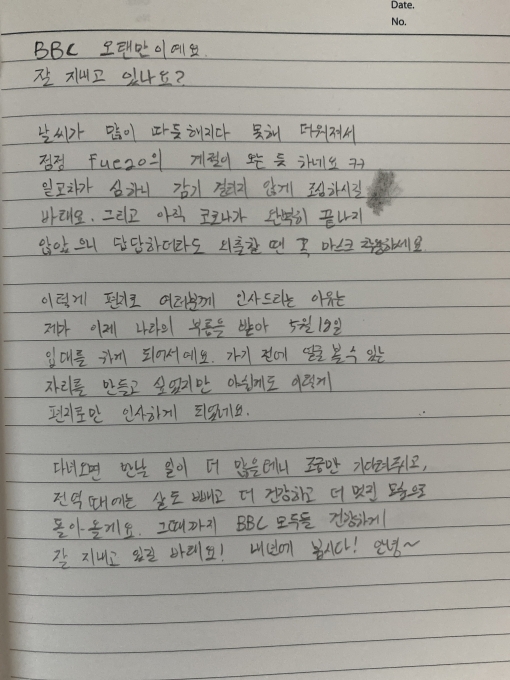 Date.
No.
BBC 오랜만이예요.
잘 지내고 있나요?
날씨가 많이 따듯해지다 못해 더워져서
점점 Fuego의 계절이 오는 듯 하네요 ㅋㅋ
일교차가 심하니 감기 걸리지 않게 조심하시길
바래요. 그리고 아직 코로나가 완벽히 끝나지
않았으니 답답하더라도 외출할 땐 꼭 마스크 착용하세요.
이렇게 편지로 여러분께 인사드리는 이유는
저마 이제 나라의 부름을 받아 5월 12일
입대를 하게 되어서예요. 가기 전에 얼굴 볼 수 있는
자리를 만들고 싶었지만 아쉽게도 이렇게
편지로만 인사하게 되었네요.
다녀오면 만날 일이 더 많을테니 조금만 기다려주시고,
전역 때에는 살도 빼고 더 건강하고 더 멋진 모습으로
돌아올게요. 그때까지 BBC 모두들 건강하게
잘 지내고 있길 바래요! 내년에 봅시다! 안녕~